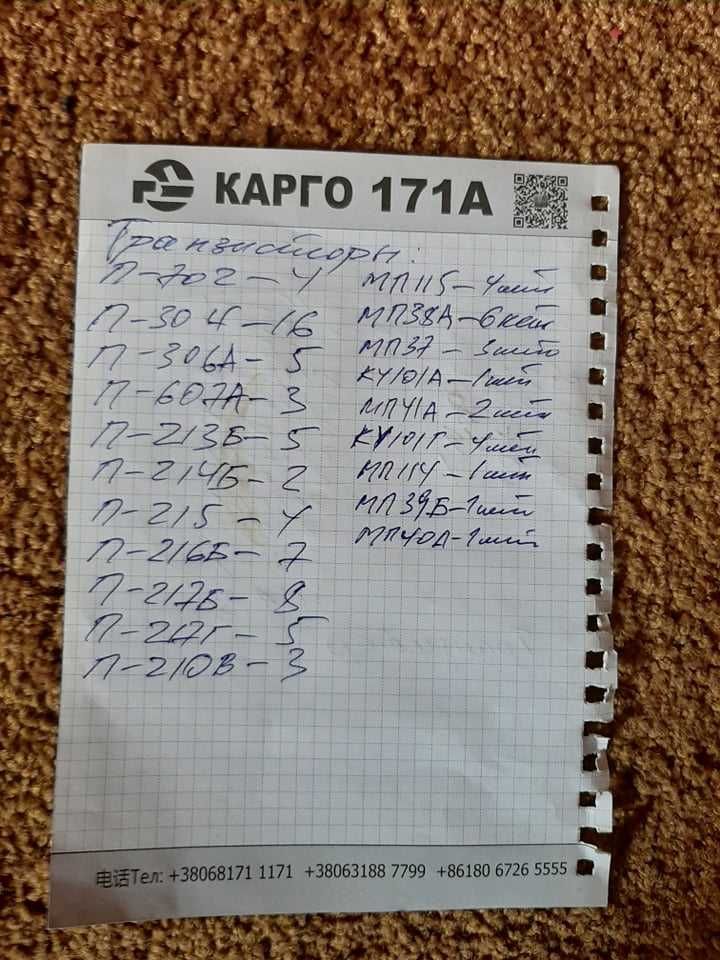 КАРГО 171А
Транзисторы:
П-702-4
П-304-16
П-306А-5
П-607А-3
П-213Б-5
П-214Б-2
П-215-4
П-216Б-7
П-217Б-8
П-217Г-5
П-210В-3
МП115-4шт
МП38А-6
МП37-3
КУ101А-1шт
МП41А-2шт
КУ101Г-4шт
МП114-1шт
МП39Б-1шт
МП40А-1шт
电话Тел: +38068171 1171 +38063188 7799 +86180 6726 5555